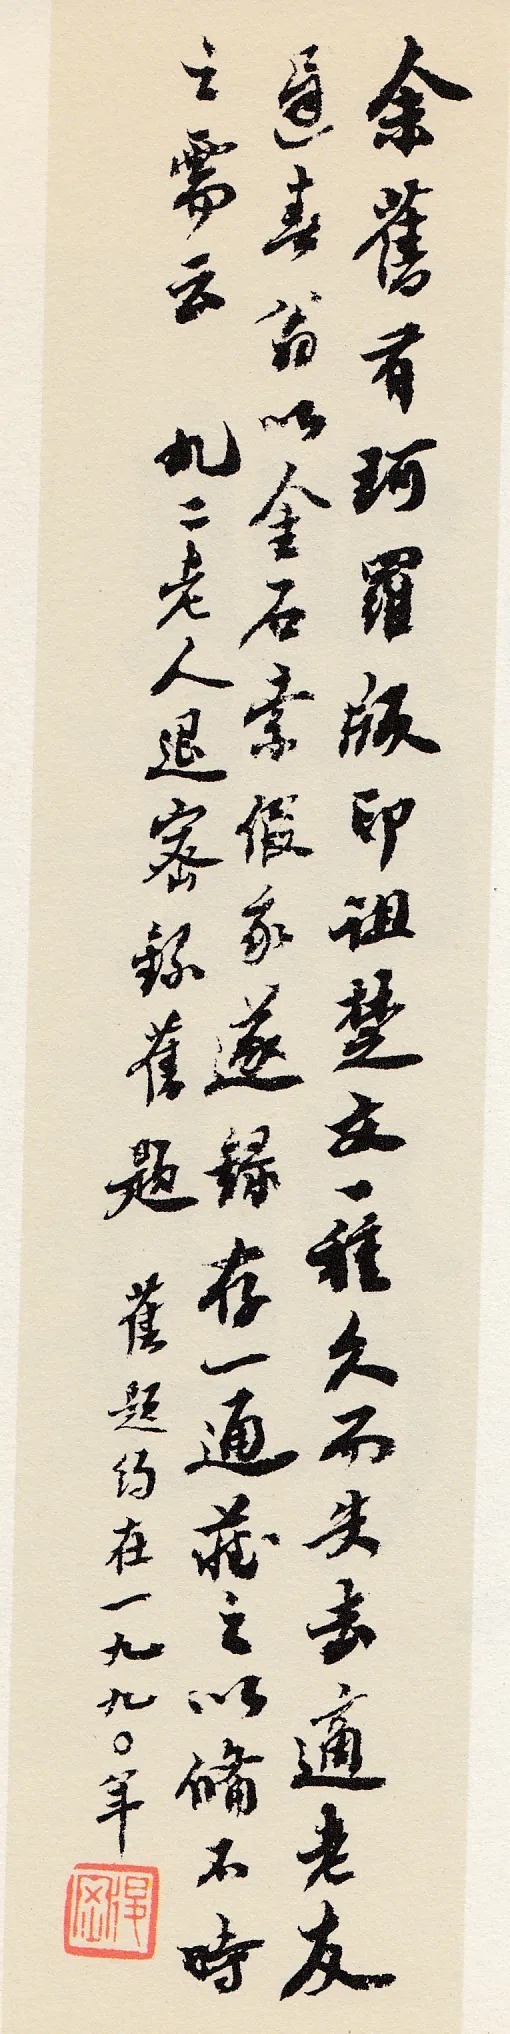 余舊有珂羅版印詛楚文一種久而失去適老友
遲春翁以金石索假我遂錄存一通藏之以備不時
之需云 九二老人退密錄舊題
舊題約在一九九〇年
退密